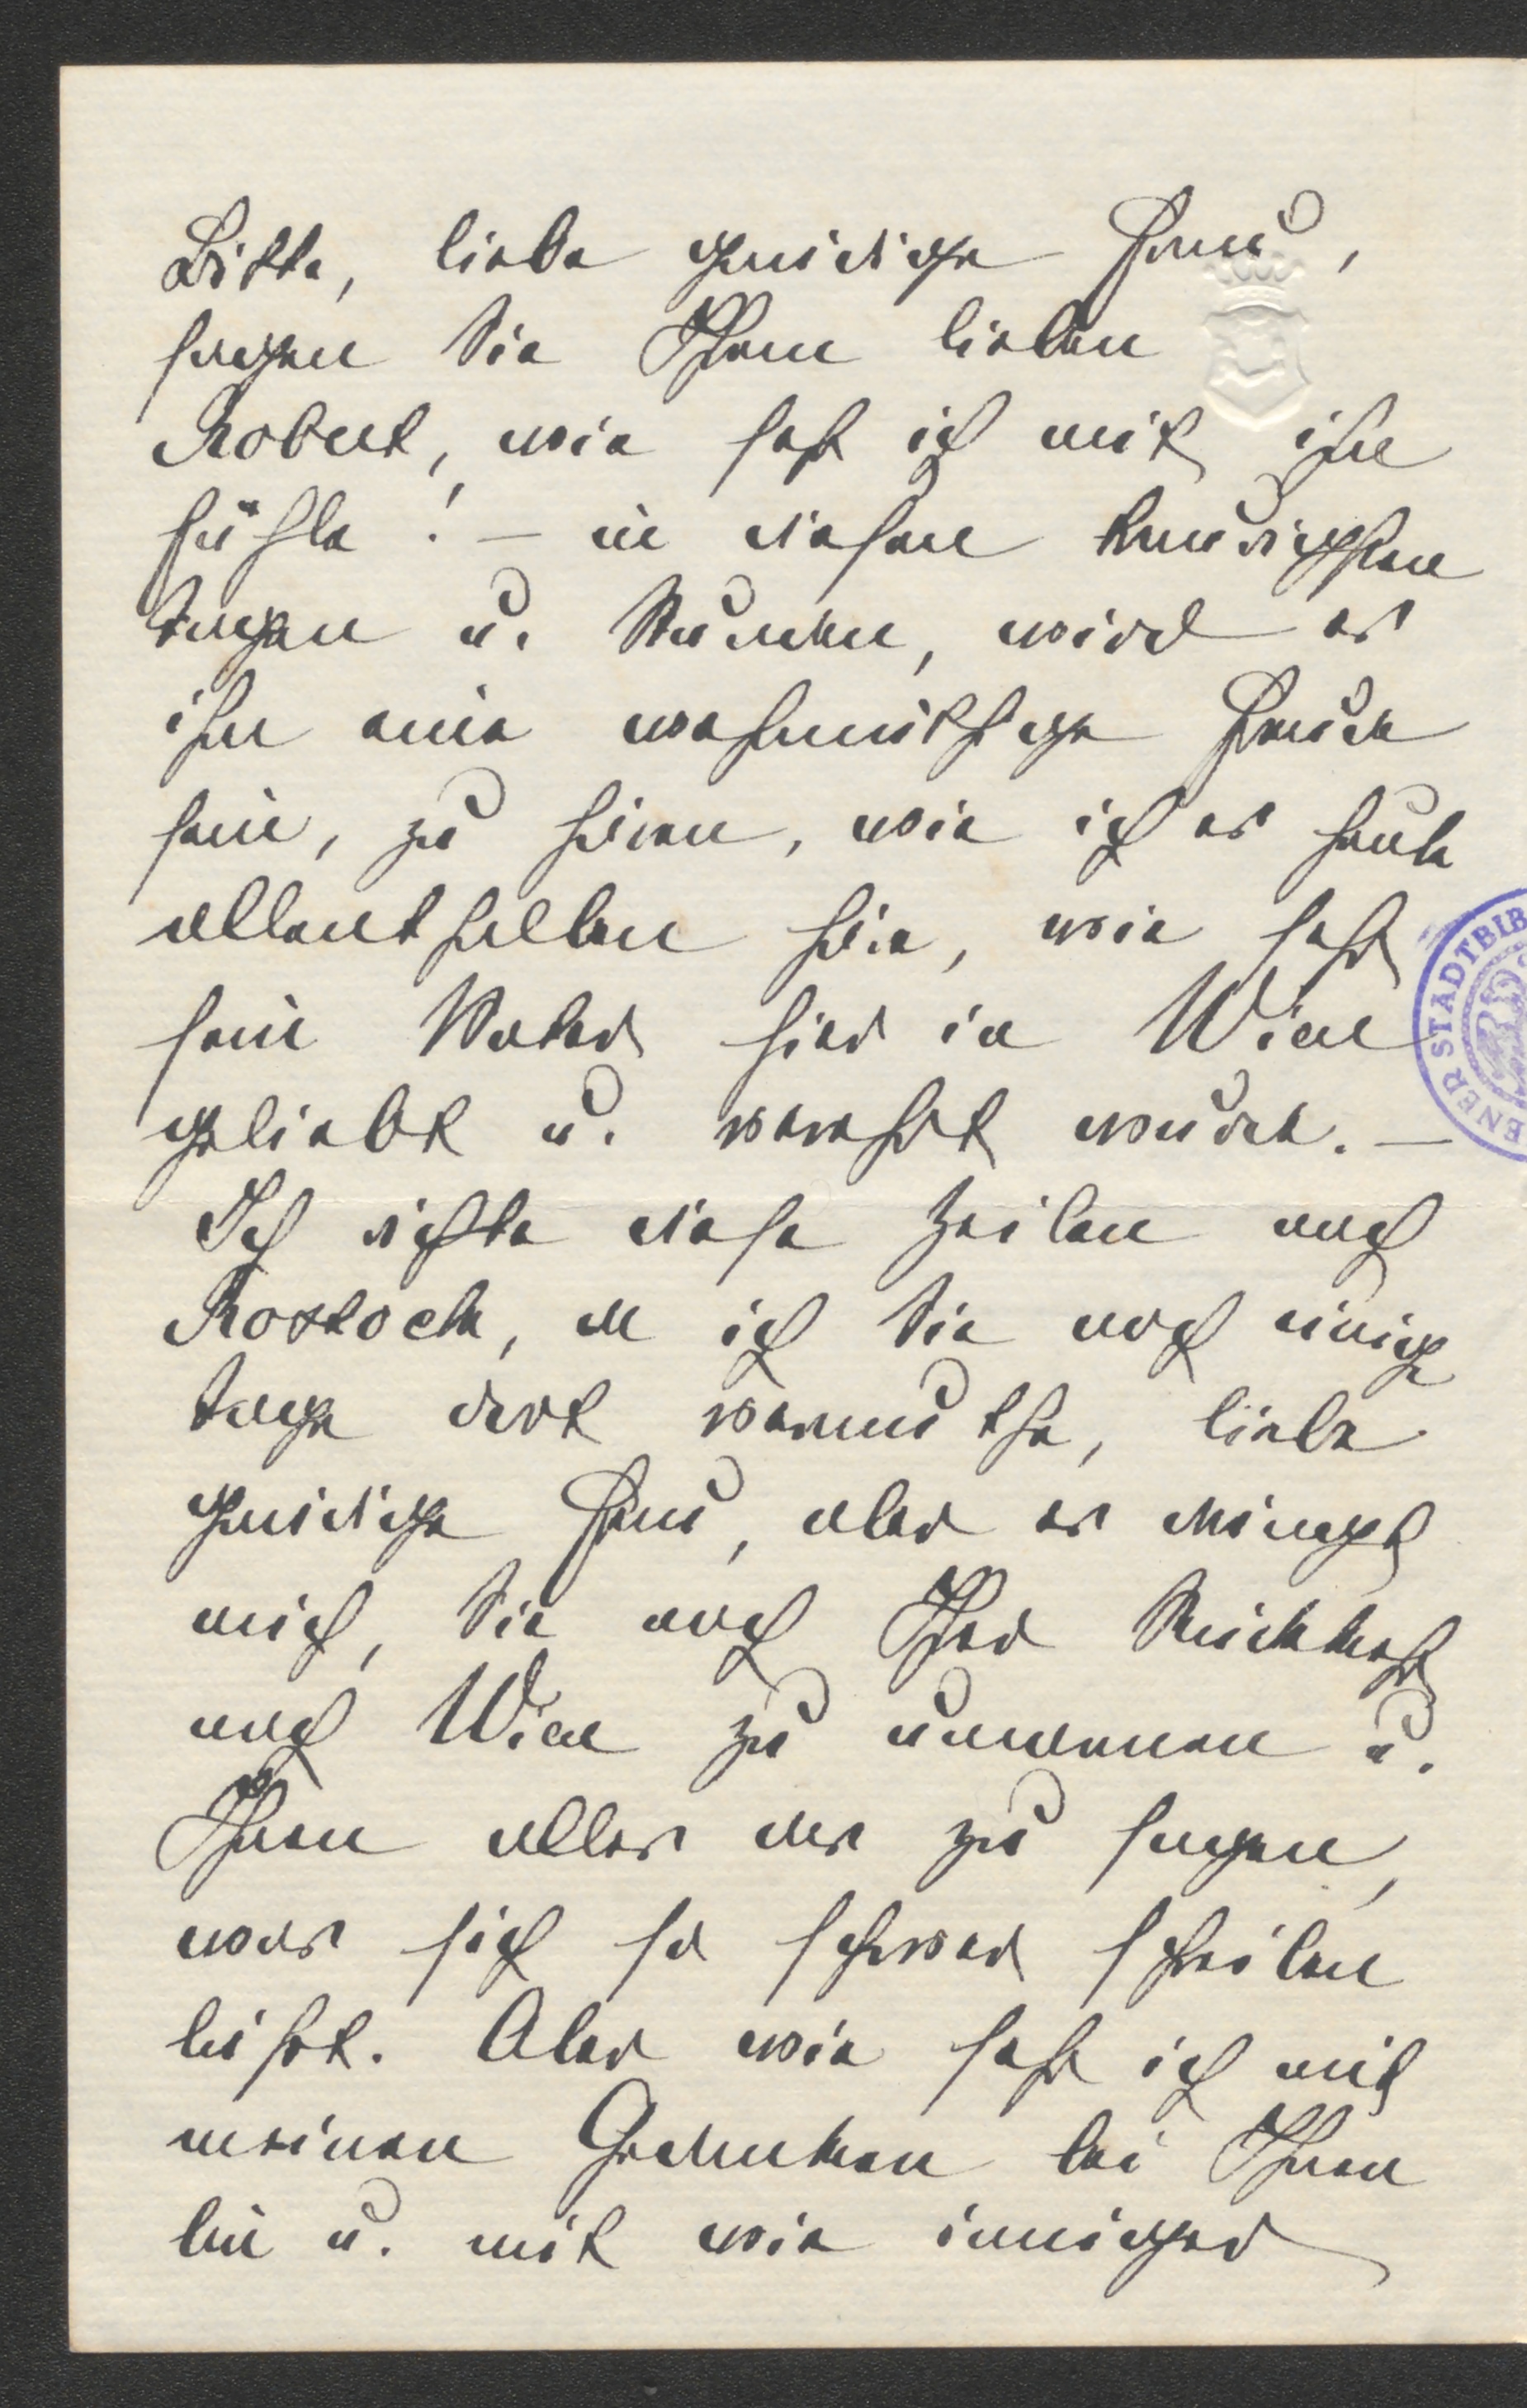 Bitte, liebe gnädige Frau,
sagen Sie Ihrem lieben
Robert, wie sehr ich mit ihm
fühle! – in diesen traurigsten
Tagen u. Stunden, wird es
ihm eine wehmüthige Freude
sein, zu hören, wie ich es heute
allenthalben höre, wie sehr
sein Vater hier in Wien
geliebt u. verehrt wurde. –
Ich richte diese Zeilen nach
Rostock, da ich Sie noch einige
Tage dort vermuthe, liebe
gnädige Frau, aber es drängt
mich, Sie nach Ihrer Rückkehr
nach Wien zu umarmen u.
Ihnen alles das zu sagen,
was sich so schwer schreiben
läßt. Aber wie sehr ich mit
meinen Gedanken bei Ihnen
bin u. mit wie inniger
ENER STADTBIB